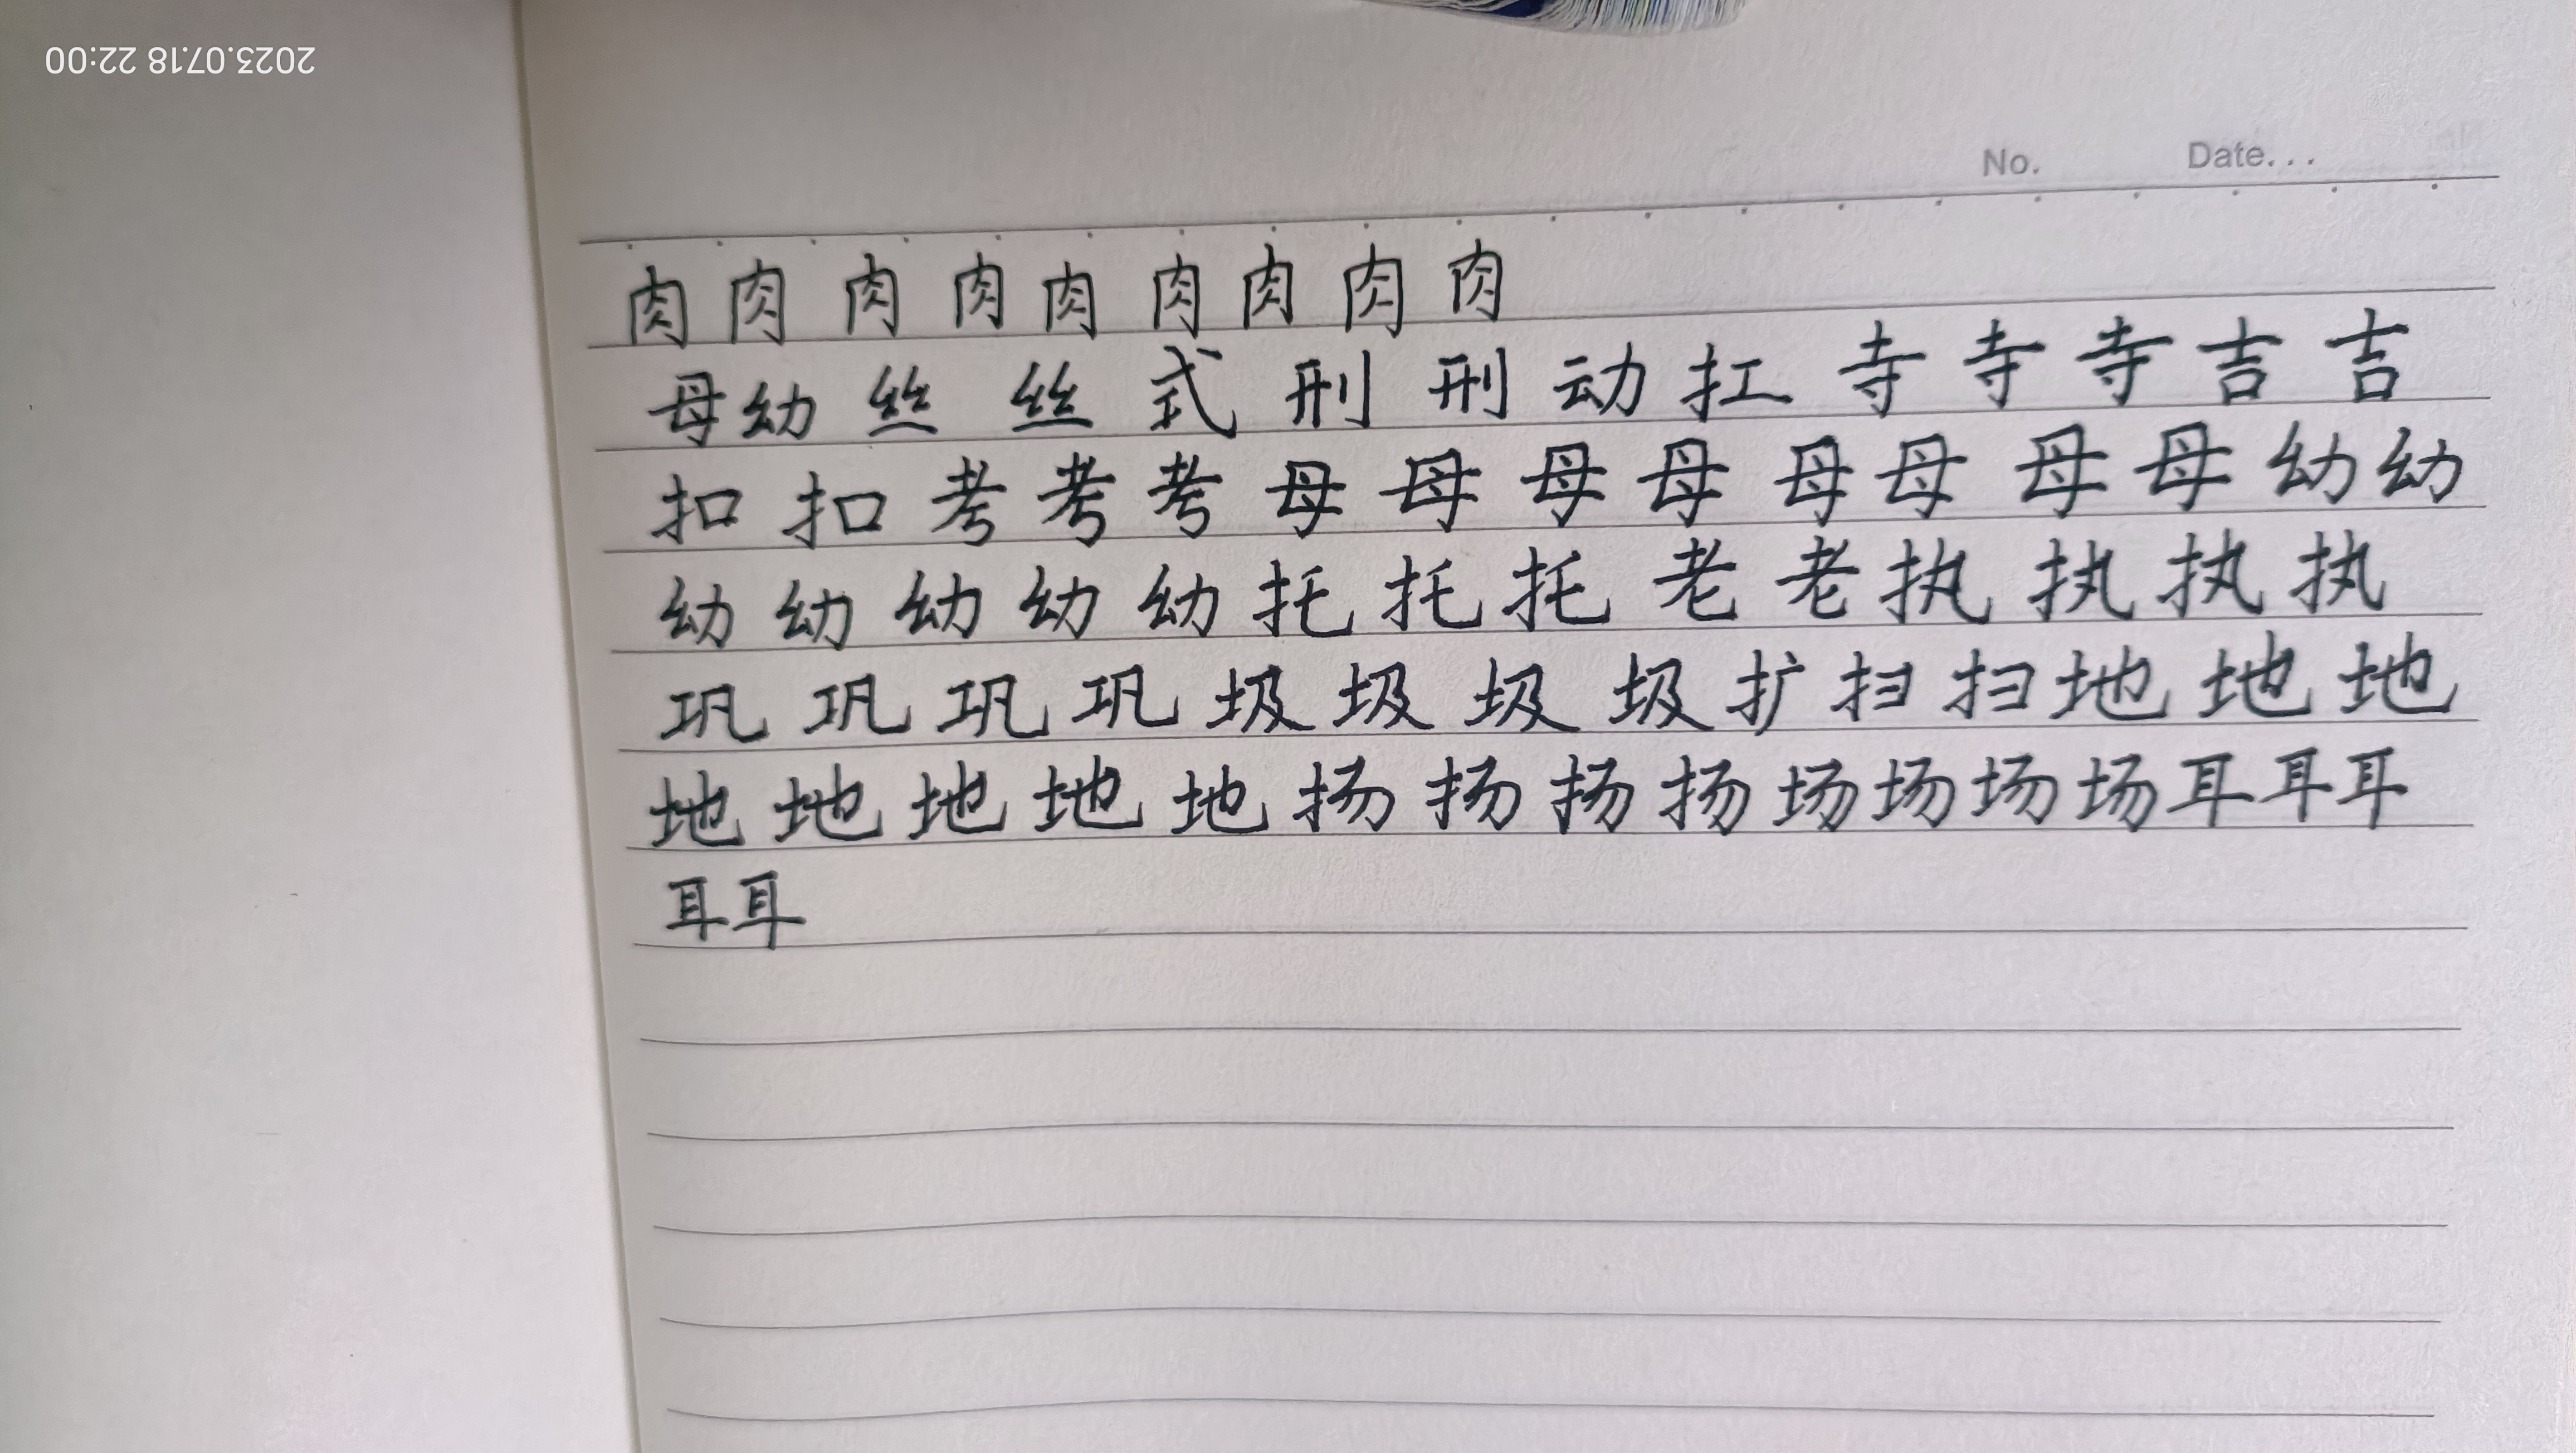 2023.07.18 22:00
No. Date...
肉 肉 肉 肉 肉 肉 肉 肉 肉
母 幼 丝 丝 式 刑 刑 动 扛 寺 寺 寺 吉 吉
扣 扣 考 考 考 母 母 母 母 母 母 母 母 幼 幼
幼 幼 幼 幼 幼 托 托 托 老 老 执 执 执 执
巩 巩 巩 巩 圾 圾 圾 圾 扩 扫 扫 地 地 地
地 地 地 地 地 扬 扬 扬 扬 场 场 场 场 耳 耳 耳
耳 耳